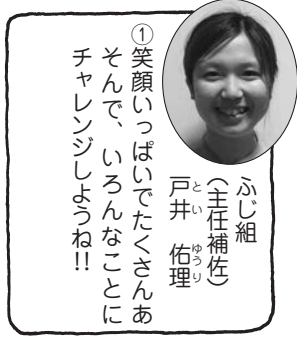 ふじ組
(主任補佐)
戸井 佑理
とい ゆうり
①笑顔いっぱいでたくさんあ
そんで、いろんなことに
チャレンジしようね!!